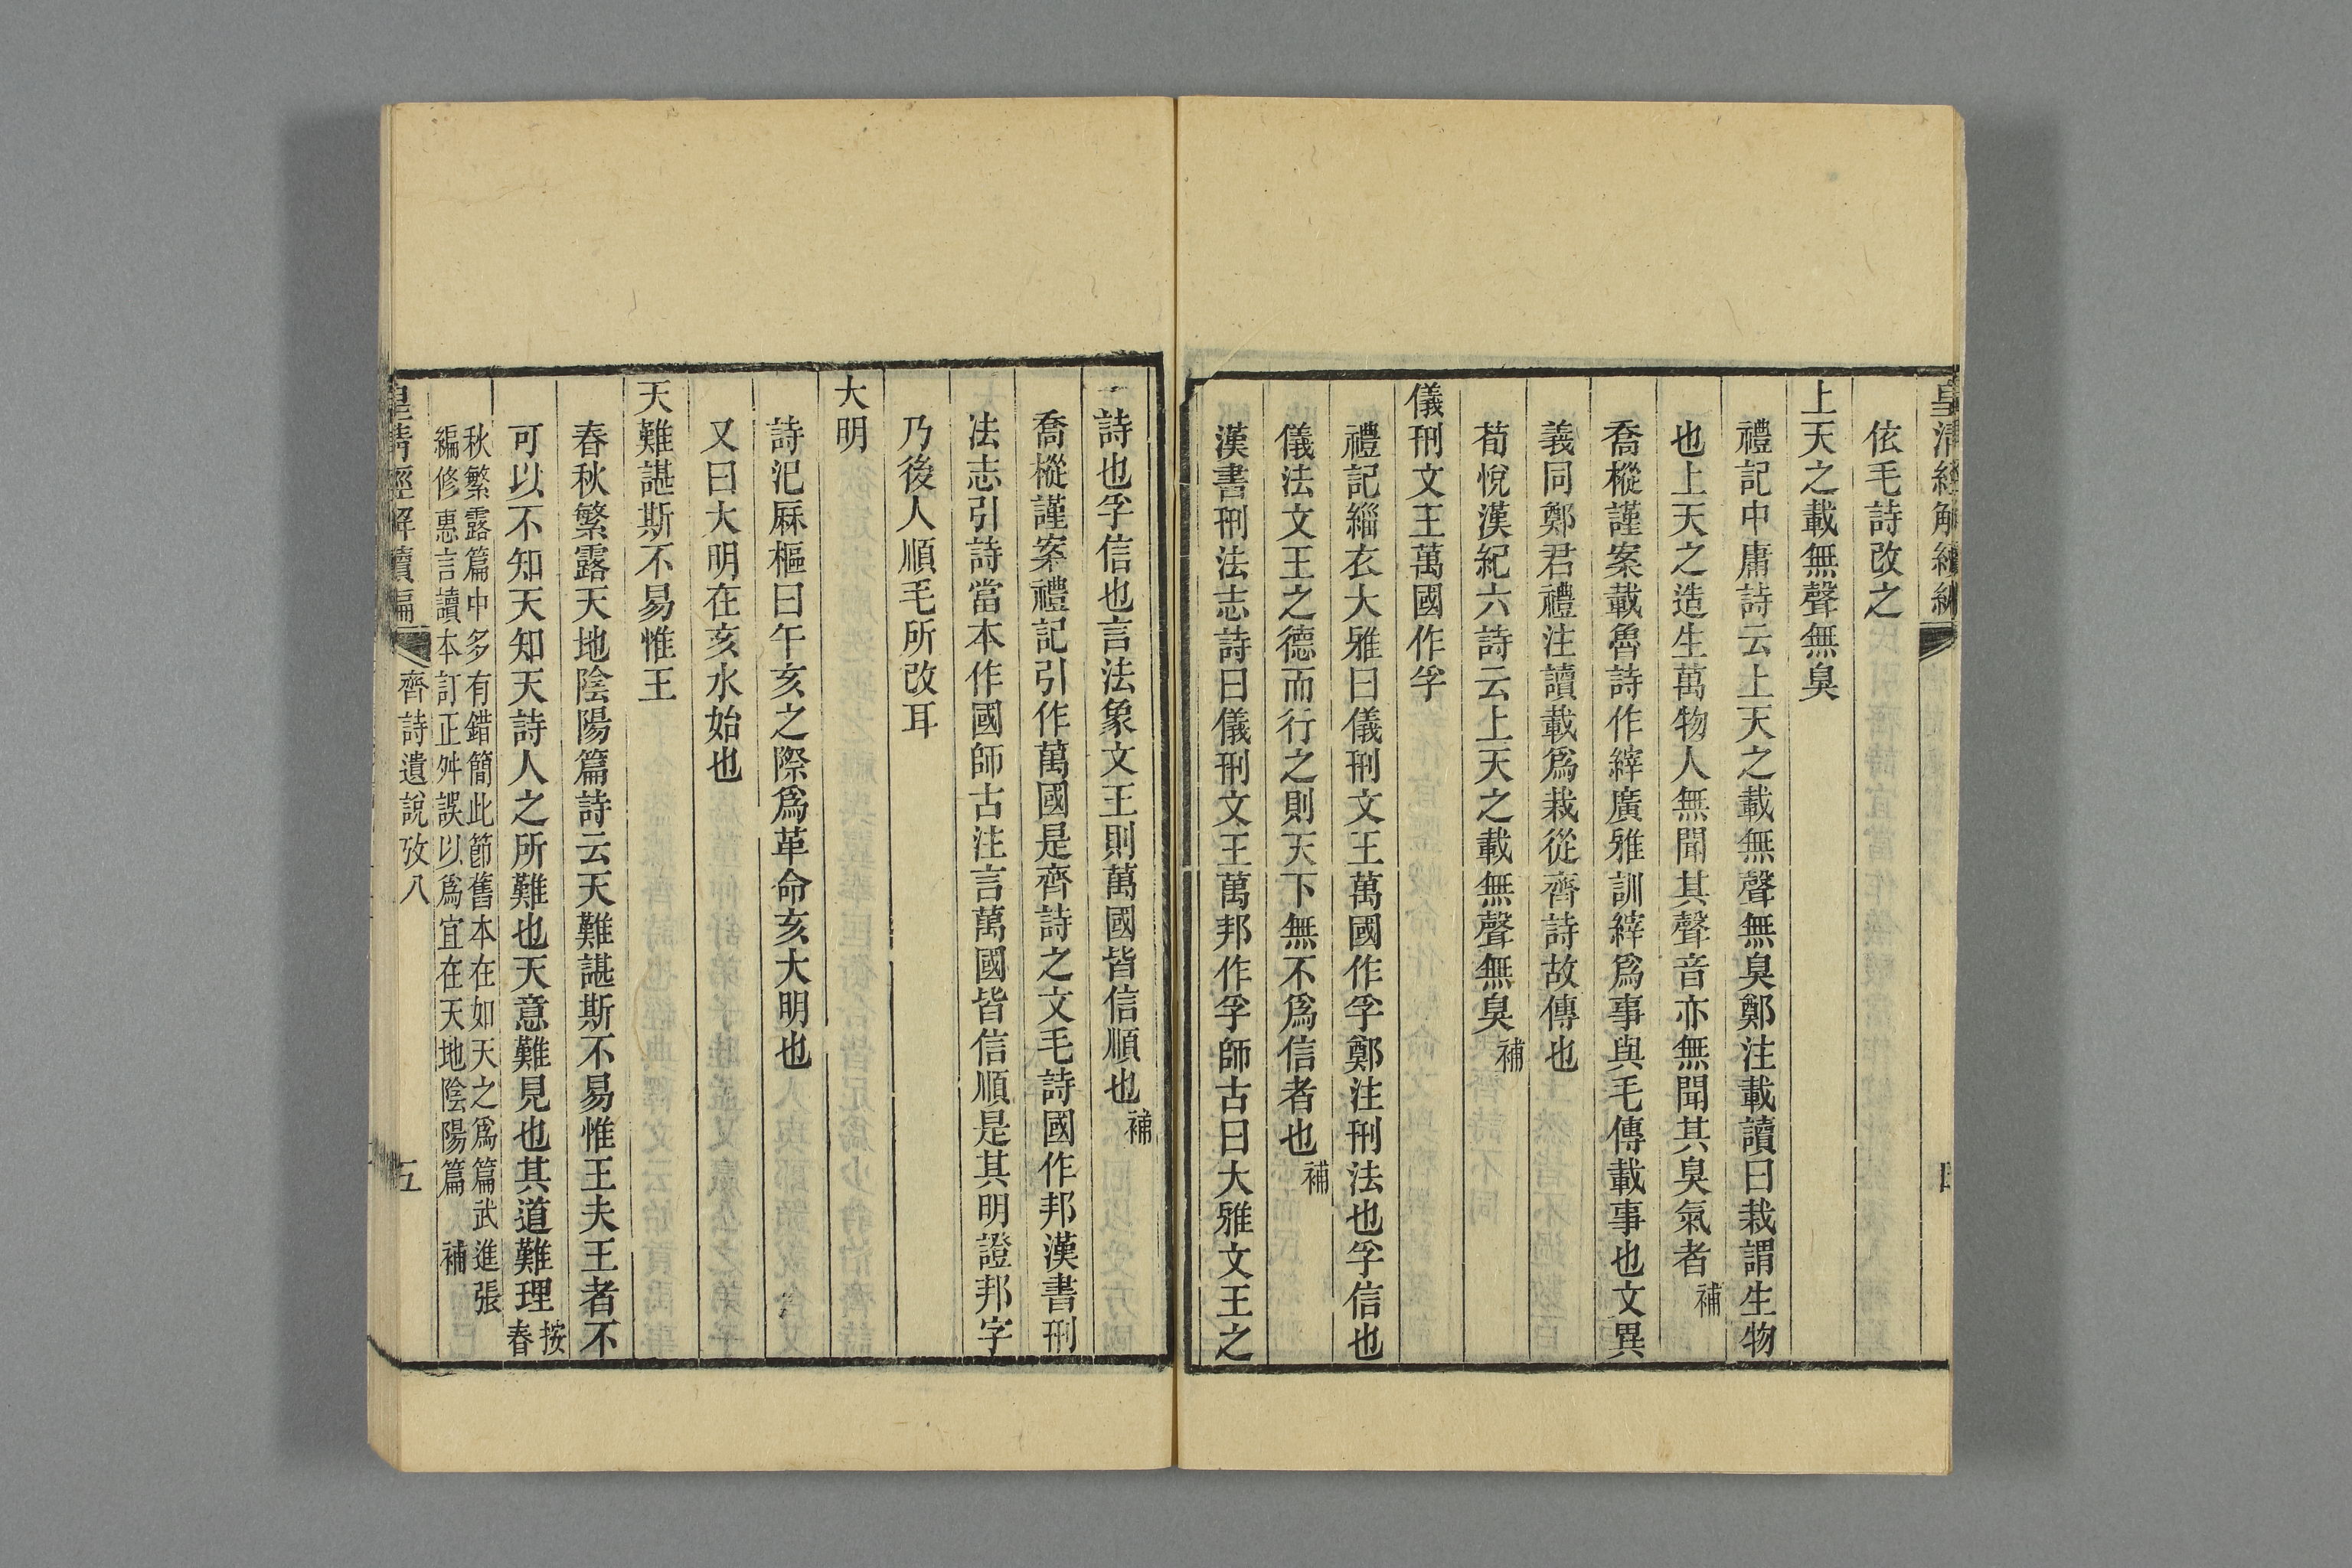 皇清經解續編
依毛詩改之
上天之載無聲無臭
禮記中庸詩云上天之載無聲無臭鄭注載讀曰栽謂生物
也上天之造生萬物人無聞其聲音亦無聞其臭氣者補
喬樅謹案載魯詩作縡廣雅訓縡爲事與毛傳載事也文異
義同鄭君禮注讀載爲栽從齊詩故傳也
荀悅漢紀六詩云上天之載無聲無臭補
儀刑文王萬國作孚
禮記緇衣大雅曰儀刑文王萬國作孚鄭注刑法也孚信也
儀法文王之德而行之則天下無不爲信者也補
漢書刑法志詩曰儀刑文王萬邦作孚師古曰大雅文王之
詩也孚信也言法象文王則萬國皆信順也補
喬樅謹案禮記引作萬國是齊詩之文毛詩國作邦漢書刑
法志引詩當本作國師古注言萬國皆信順是其明證邦字
乃後人順毛所改耳
大明
詩汜厤樞曰午亥之際爲革命亥大明也
又曰大明在亥水始也
天難諶斯不易惟王
春秋繁露天地陰陽篇詩云天難諶斯不易惟王夫王者不
可以不知天知天詩人之所難也天意難見也其道難理按
春
秋繁露篇中多有錯簡此節舊本在如天之爲篇武進張
編修惠言讀本訂正舛誤以爲宜在天地陰陽篇補
皇清經解續編 齊詩遺說攷八 五